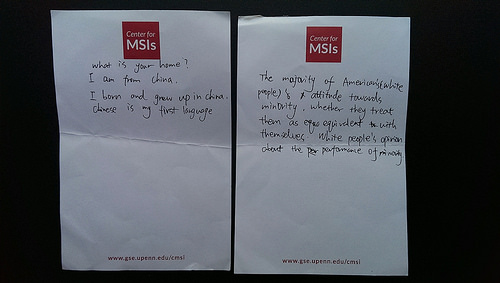 Center for
MSIs
what is your home?
I am from China.
I born and grew up in China.
Chinese is my first laguage
www.gse.upenn.edu/cmsi
Center for
MSIs
The majority of Americans(white
people)'s attitude towards
minority, whether they treat
them as equivalent with
themselves. White people's opinion
about the performance of minority
www.gse.upenn.edu/cmsi